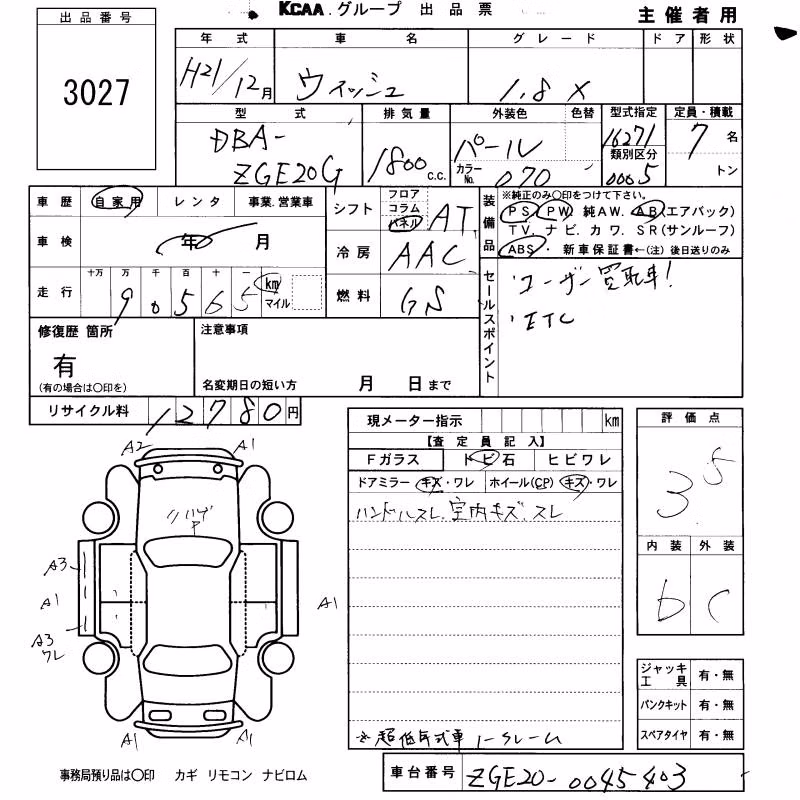 KCAA.グループ 出品票
主催者用
出品番号
3027
年式 車名 グレード ドア 形状
H21/12月 ウィッシュ 1.8 X
型式 排気量 外装色 色替 型式指定 定員・積載
DBA-
ZGE20G
1800c.c.
パール
カラーNo. 070
16271
類別区分
0005
7名
トン
車歴 自家用 レンタ 事業.営業車
車検 年 月
走行 十万 万 千 百 十 一
90565 km マイル
シフト フロア コラム パネル AT
冷房 AAC
燃料 GS
装備品
※純正のみ〇印をつけて下さい。
PS PW 純AW. AB(エアバック)
TV. ナビ. カワ. SR(サンルーフ)
ABS ・ 新車保証書←(注) 後日送りのみ
セールスポイント
・ユーザー買取車!
・ETC
修復歴 箇所
有
(有の場合は〇印を)
注意事項
名変期日の短い方 月 日まで
リサイクル料 12780円
現メーター指示 km
【査定員記入】
Fガラス トビ石 ヒビワレ
ドアミラー キズ・ワレ ホイール(CP) キズ・ワレ
ハンドルスレ.室内キズ.スレ
※超低年式車 ノークレーム
評価点
3.5
内装 外装
b C
A2 A1
リハゲ
P
A3
A1 A1
A3
ワレ
A1 A1
ジャッキ工具 有・無
パンクキット 有・無
スペアタイヤ 有・無
事務局預り品は〇印 カギ リモコン ナビロム
車台番号 ZGE20-0045403